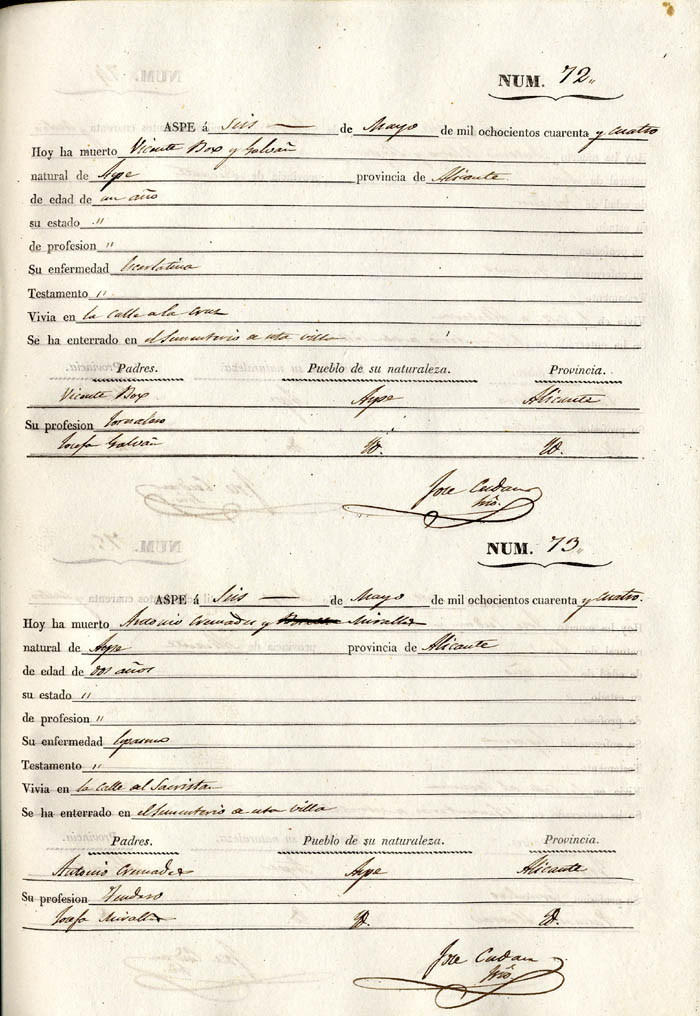 NUM. 72
ASPE á Seis de Mayo de mil ochocientos cuarenta y cuatro
Hoy ha muerto Vicente Box y Galvañ
natural de Aspe provincia de Alicante
de edad de un año
su estado "
de profesion "
Su enfermedad Escarlatina
Testamento "
Vivia en la calle a la Cruz
Se ha enterrado en el Sementerio de esta villa
Padres. Pueblo de su naturaleza. Provincia.
Vicente Box Aspe Alicante
Su profesion Jornalero
Josefa Galvañ Id. Id.
Jose
NUM. 73
ASPE á Seis de Mayo de mil ochocientos cuarenta y cuatro.
Hoy ha muerto Antonio Cremades y Miralles
natural de Aspe provincia de Alicante
de edad de dos años
su estado "
de profesion "
Su enfermedad Espasmo
Testamento "
Vivia en la calle del Sacristan
Se ha enterrado en el Sementerio de esta villa
Padres. Pueblo de su naturaleza. Provincia.
Antonio Cremades Aspe Alicante
Su profesion
Josefa Miralles Id. Id.
Jose